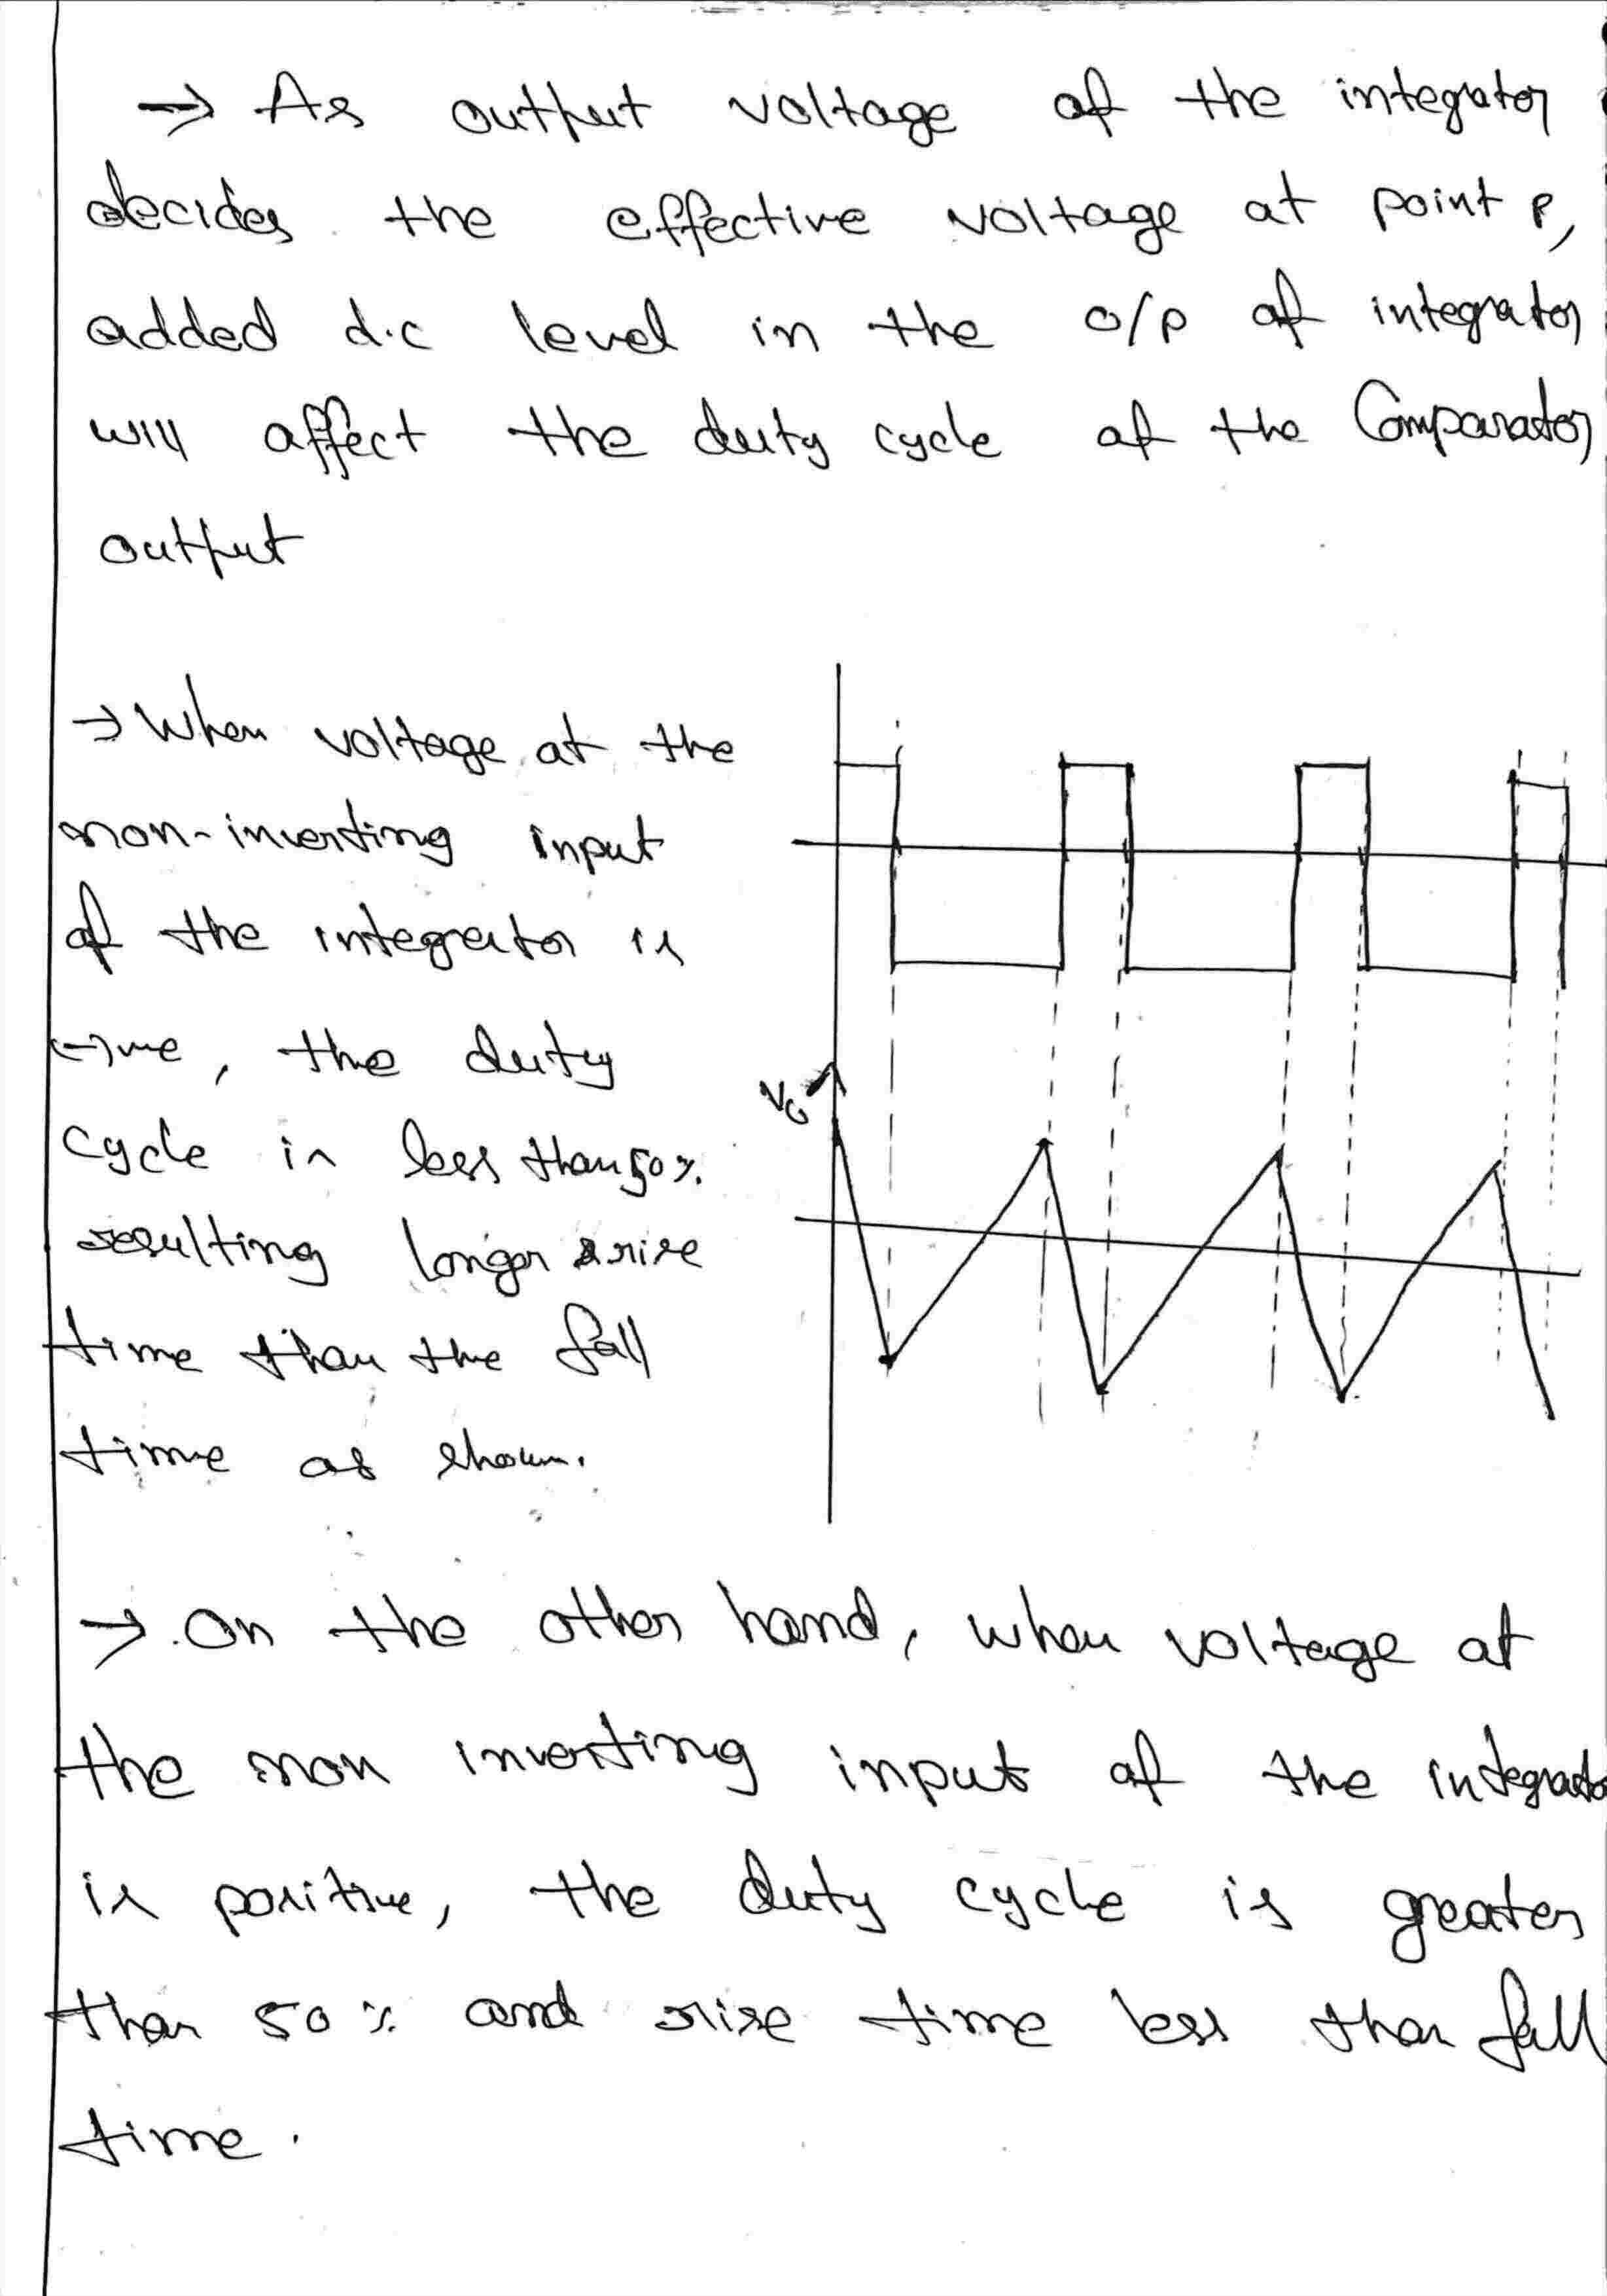 → As output voltage of the integrator
decides the effective voltage at point P,
added d.c level in the o/p of integrator
will affect the duty cycle of the Comparator
output
→ When voltage at the
non-inverting input
of the integrator is
(-)ve, the duty
cycle is less than 50%.
resulting longer rise
time than the fall
time as shown.
Vo
→ On the other hand, when voltage at
the non inverting input of the integrator
is positive, the duty cycle is greater
than 50% and rise time less than fall
time.